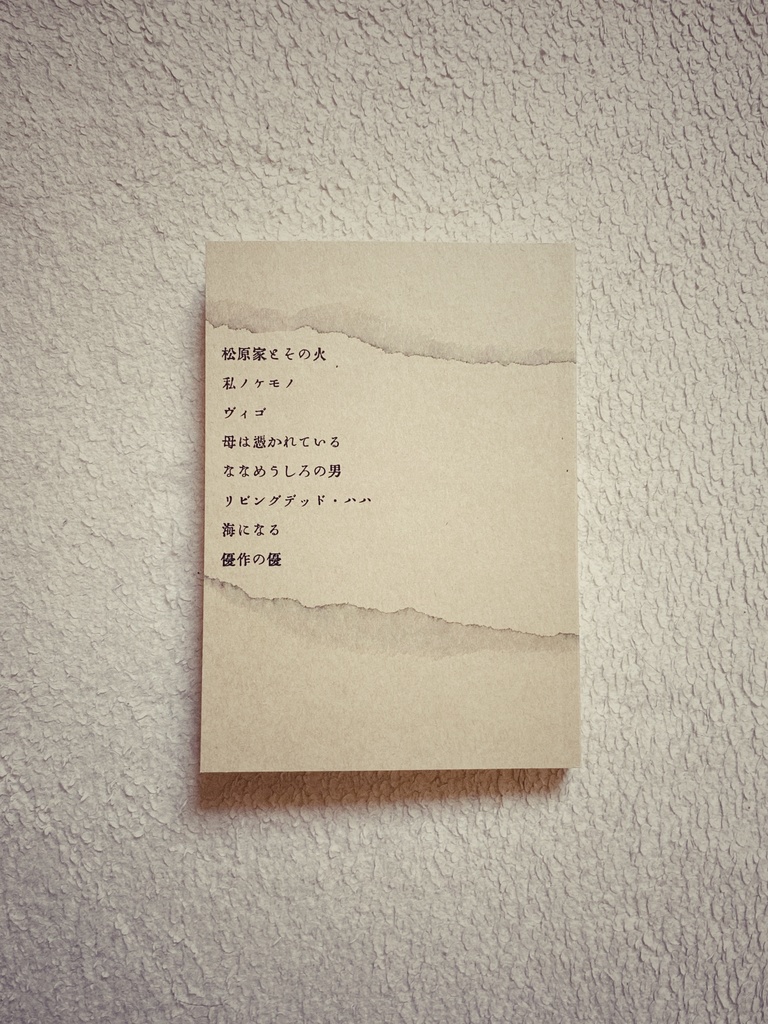 松原家とその火
私ノケモノ
ヴィゴ
母は憑かれている
ななめうしろの男
リビングデッド・ハハ
海になる
優作の優